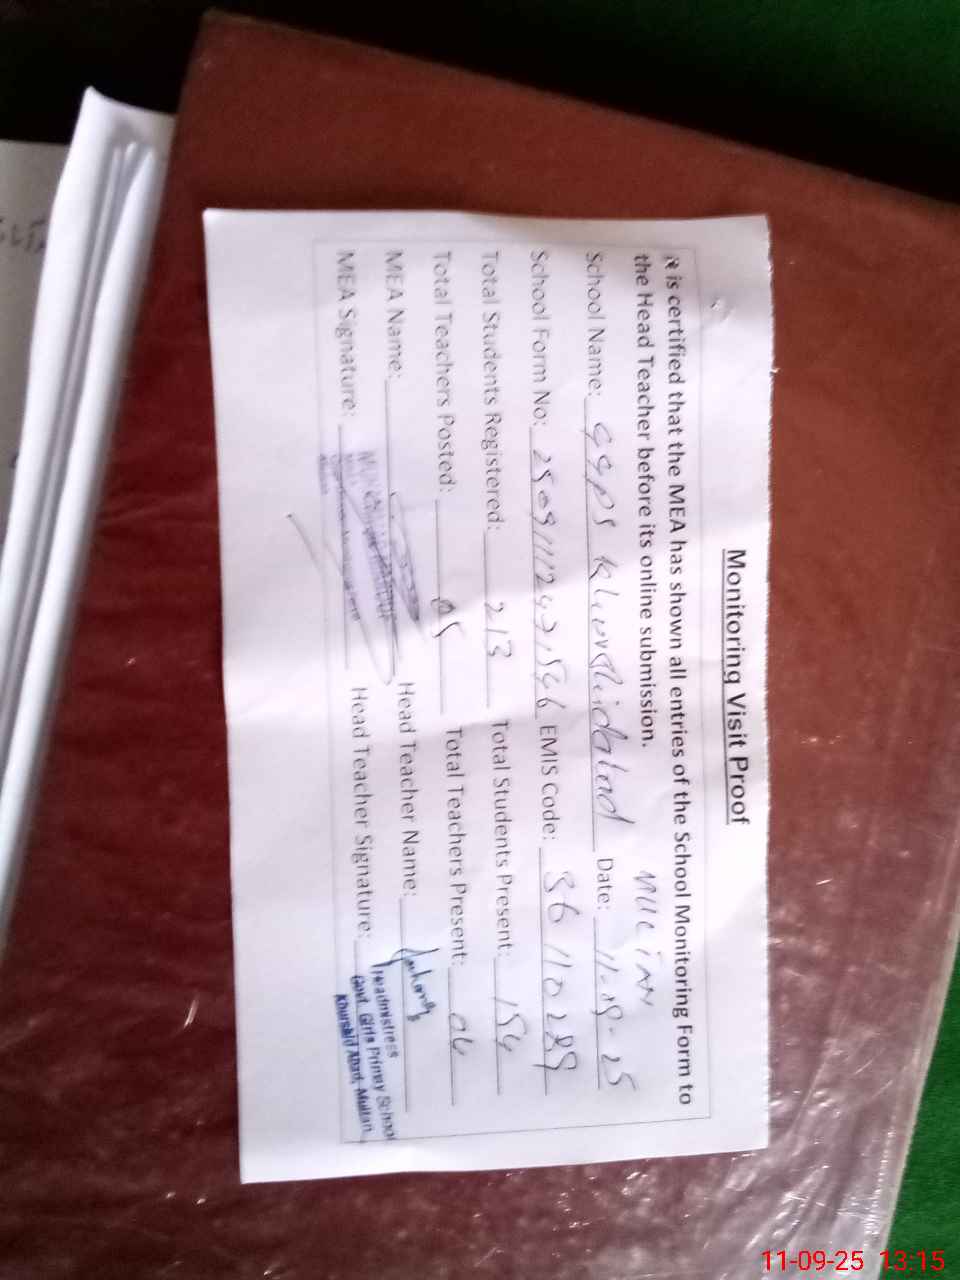 Monitoring Visit Proof
It is certified that the MEA has shown all entries of the School Monitoring Form to
the Head Teacher before its online submission.
School Name: GGPS Khurshidabad Multan Date: 11-09-25
School Form No: EMIS Code: 36110289
Total Students Registered: 213 Total Students Present: 154
Total Teachers Posted: 05 Total Teachers Present: 04
MEA Name: Head Teacher Name:
MEA Signature: Head Teacher Signature:
Headmistress
Govt. Girls Primry School
Khurshid Abad, Multan
11-09-25 13:15